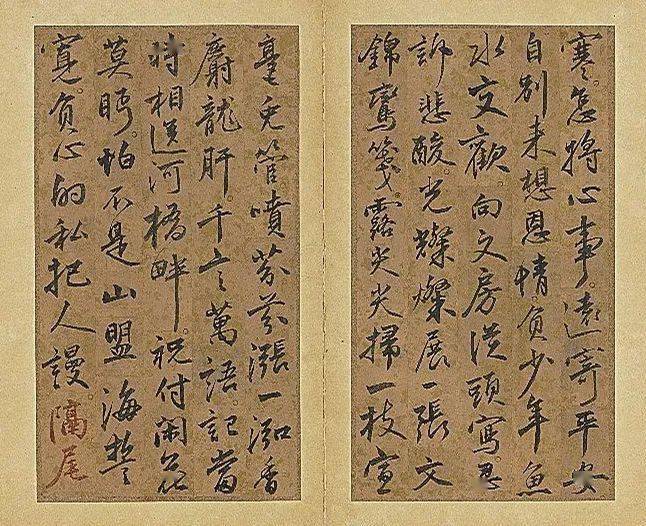 寒。怎將心事。遠寄平安
自別來想恩情。負少年魚
水交歡。向文房從頭寫。
訴悲酸。光燦燦展一張文
錦鸞箋。露尖尖掃一枝宣
毫兔管。噴芬芬漲一泓香
麝龍肝。千言萬語。記當
時相送河橋畔。祝付閑花
莫眄。怕不是山盟海誓
寬。負心的私把人謾。隔尾